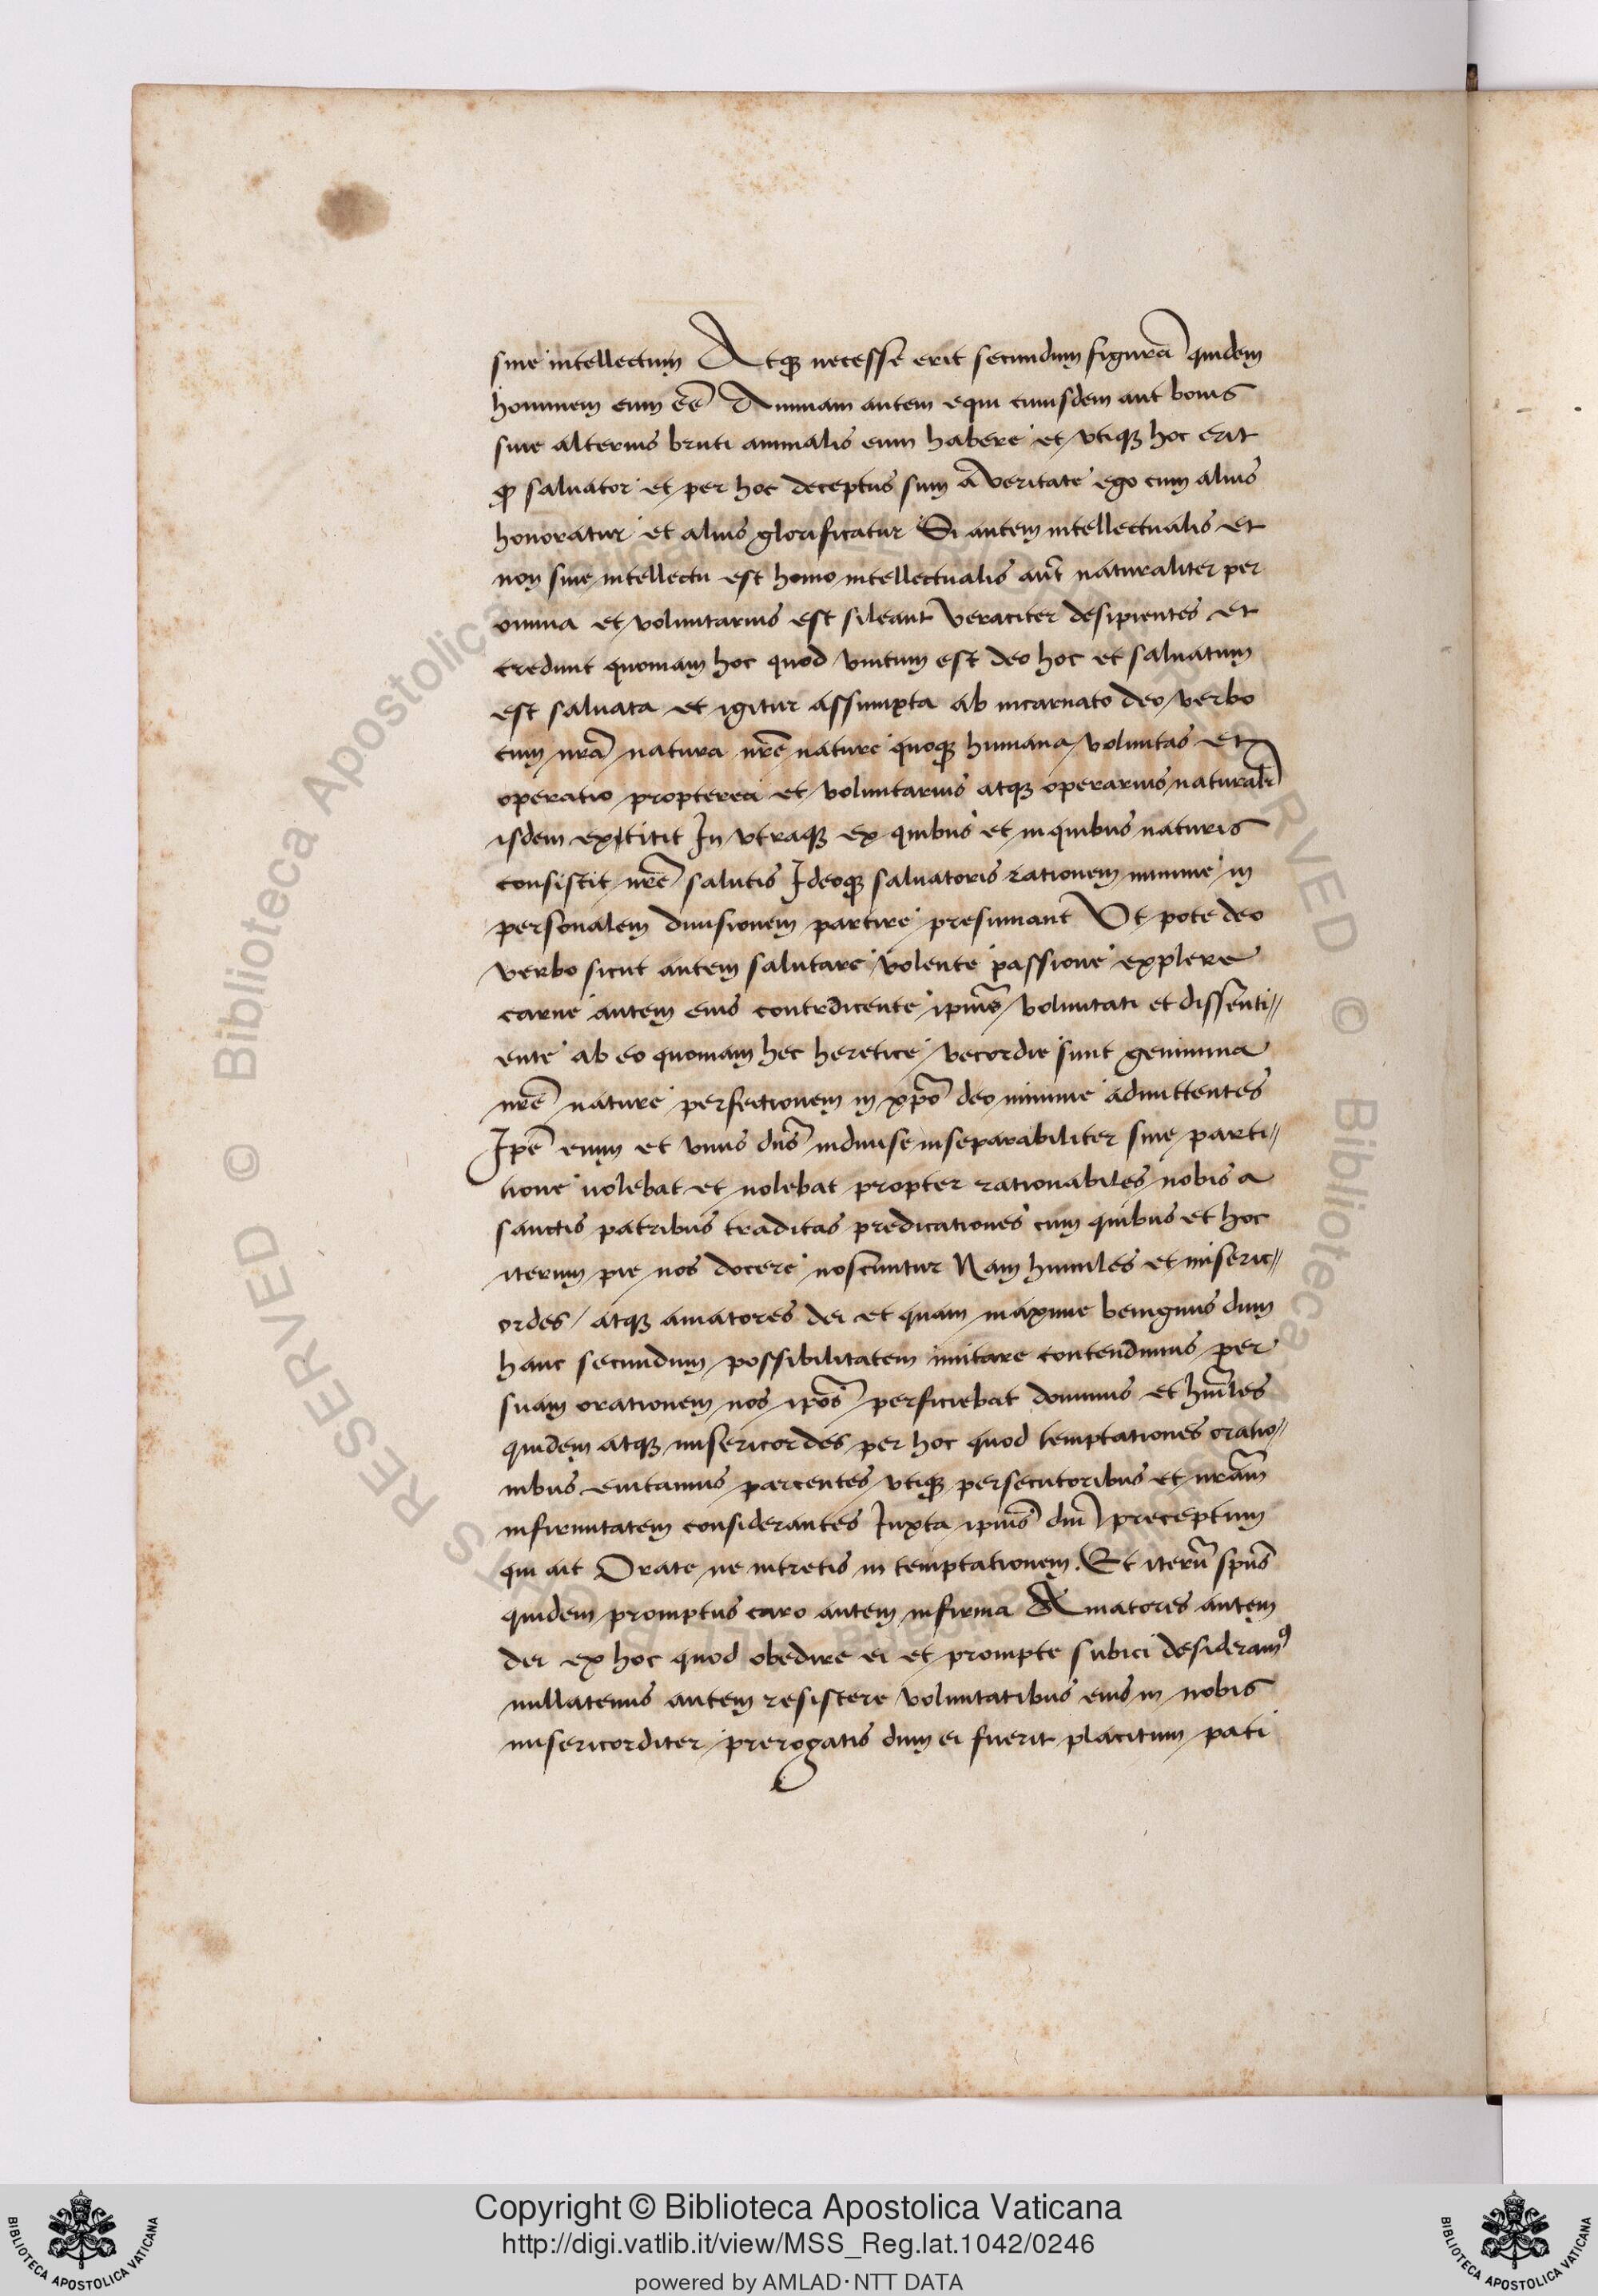 sine intellectum Atq̃ necesse erit secundum figurã quidem
hominem eum eẽ Animam autem equi cuiusdem aut bouis
siue alterius bruti animalis eum habere et vtiq̃ hoc erit
saluator et per hoc deceptus sum a veritate ego cum alius
honoratur et alius glorificatur Si autem intellectualis et
non sine intellectu est homo intellectualis aũt naturaliter per
omnia et voluntarius est sileant veraciter desipientes et
credunt quoniam hoc quod vnitum est deo hoc et saluatum
est saluata et igitur assumpta ab incarnato deo verbo
cum nrã natura nrẽ nature quoq̃ humana voluntas et
operatio propterea et voluntarius atq̃ operarius naturalr̃
isdem extitit In vtraq̃ ex quibus et in quibus naturis
consistit nrẽ salutis Ideoq̃ saluatoris rationem minime in
personalem diuisionem partire presumant Vt pote deo
verbo sicut autem salutare volente passione explere
carne autem eius contrdicente ipiũs voluntati et dissenti//
ente ab eo quoniam hec heretice vecordie sunt genimina
nrẽ nature perfectionem in xp̃o deo minime admittentes
Ipẽ enim et vnus dñs indiuise inseparabiliter sine parti//
tione uolebat et nolebat propter rationabiles nobis a
sanctis patribus traditas predicationes cum quibus et hoc
iterum pie nos docere noscuntur Nam humiles et miseric//
ordes / atq̃ amatores dei et quam maxime benignus dum
hanc secundum possibilitatem imitare contendimus per
suam orationem nos ipõs perficiebat dominus et hũiles
quidem atq̃ misericordes per hoc quod temptationes oratio//
nibus euitamus parcentes vtiq̃ persecutoribus et nrãm
infirmitatem considerantes Iuxta ipiũs dñi preceptum
qui ait Orate ne intretis in temptationem. Et iterũ spũs
quidem promptus caro autem infirma Amatores autem
dei ex hoc quod obedire ei et prompte subici desideramꝰ
nullatenus autem resistere voluntatibus eius in nobis
misericorditer prerogatis dum ei fuerit placitum pati
© Biblioteca Apostolica Vaticana
ALL RIGHTS RESERVED
Copyright © Biblioteca Apostolica Vaticana
http://digi.vatlib.it/view/MSS_Reg.lat.1042/0246
powered by AMLAD·NTT DATA
BIBLIOTECA APOSTOLICA VATICANA
BIBLIOTECA APOSTOLICA VATICANA